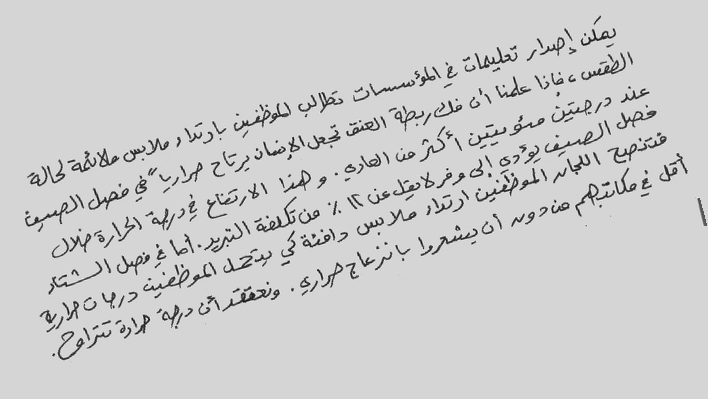 يمكن إصدار تعليمات في المؤسسات تطالب الموظفين بارتداء ملابس ملائمة لحالة
الطقس، فإذا علمنا أن فك ربطة العنق تجعل الإنسان يرتاح حرارياً في فصل الصيف
عند درجتين مئويتين أكثر من العادي. وهذا الارتفاع في درجة الحرارة خلال
فصل الصيف يؤدي إلى وفر لا يقل عن ١٢ ٪ من تكلفة التبريد. أما في فصل الشتاء
فتنصح اللجان الموظفين ارتداء ملابس دافئة كي يتحمل الموظفين درجات حرارية
أقل في مكاتبهم من دون أن يشعروا بانزعاج حراري. ونعتقد أن درجة حرارة تتراوح.